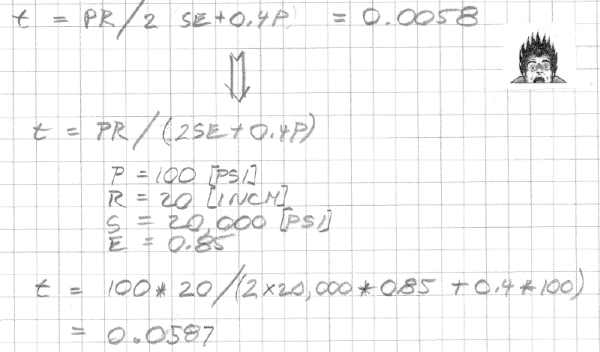 t = PR/2 SE+0.4P = 0.0058
t = PR/(2SE+0.4P)
P = 100 [PSI]
R = 20 [INCH]
S = 20,000 [PSI]
E = 0.85
t = 100* 20/(2×20,000*0.85 +0.4*100)
= 0.0587